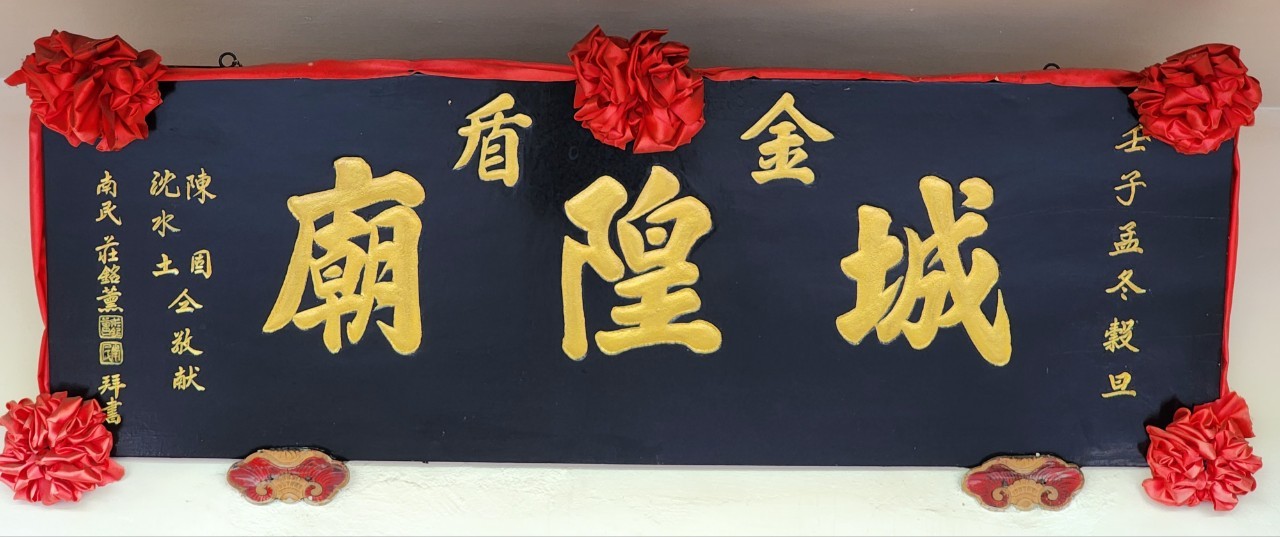 壬子孟冬穀旦
金盾
城隍廟
陳圊
沈水土
仝敬献
南民莊銘薰拜書